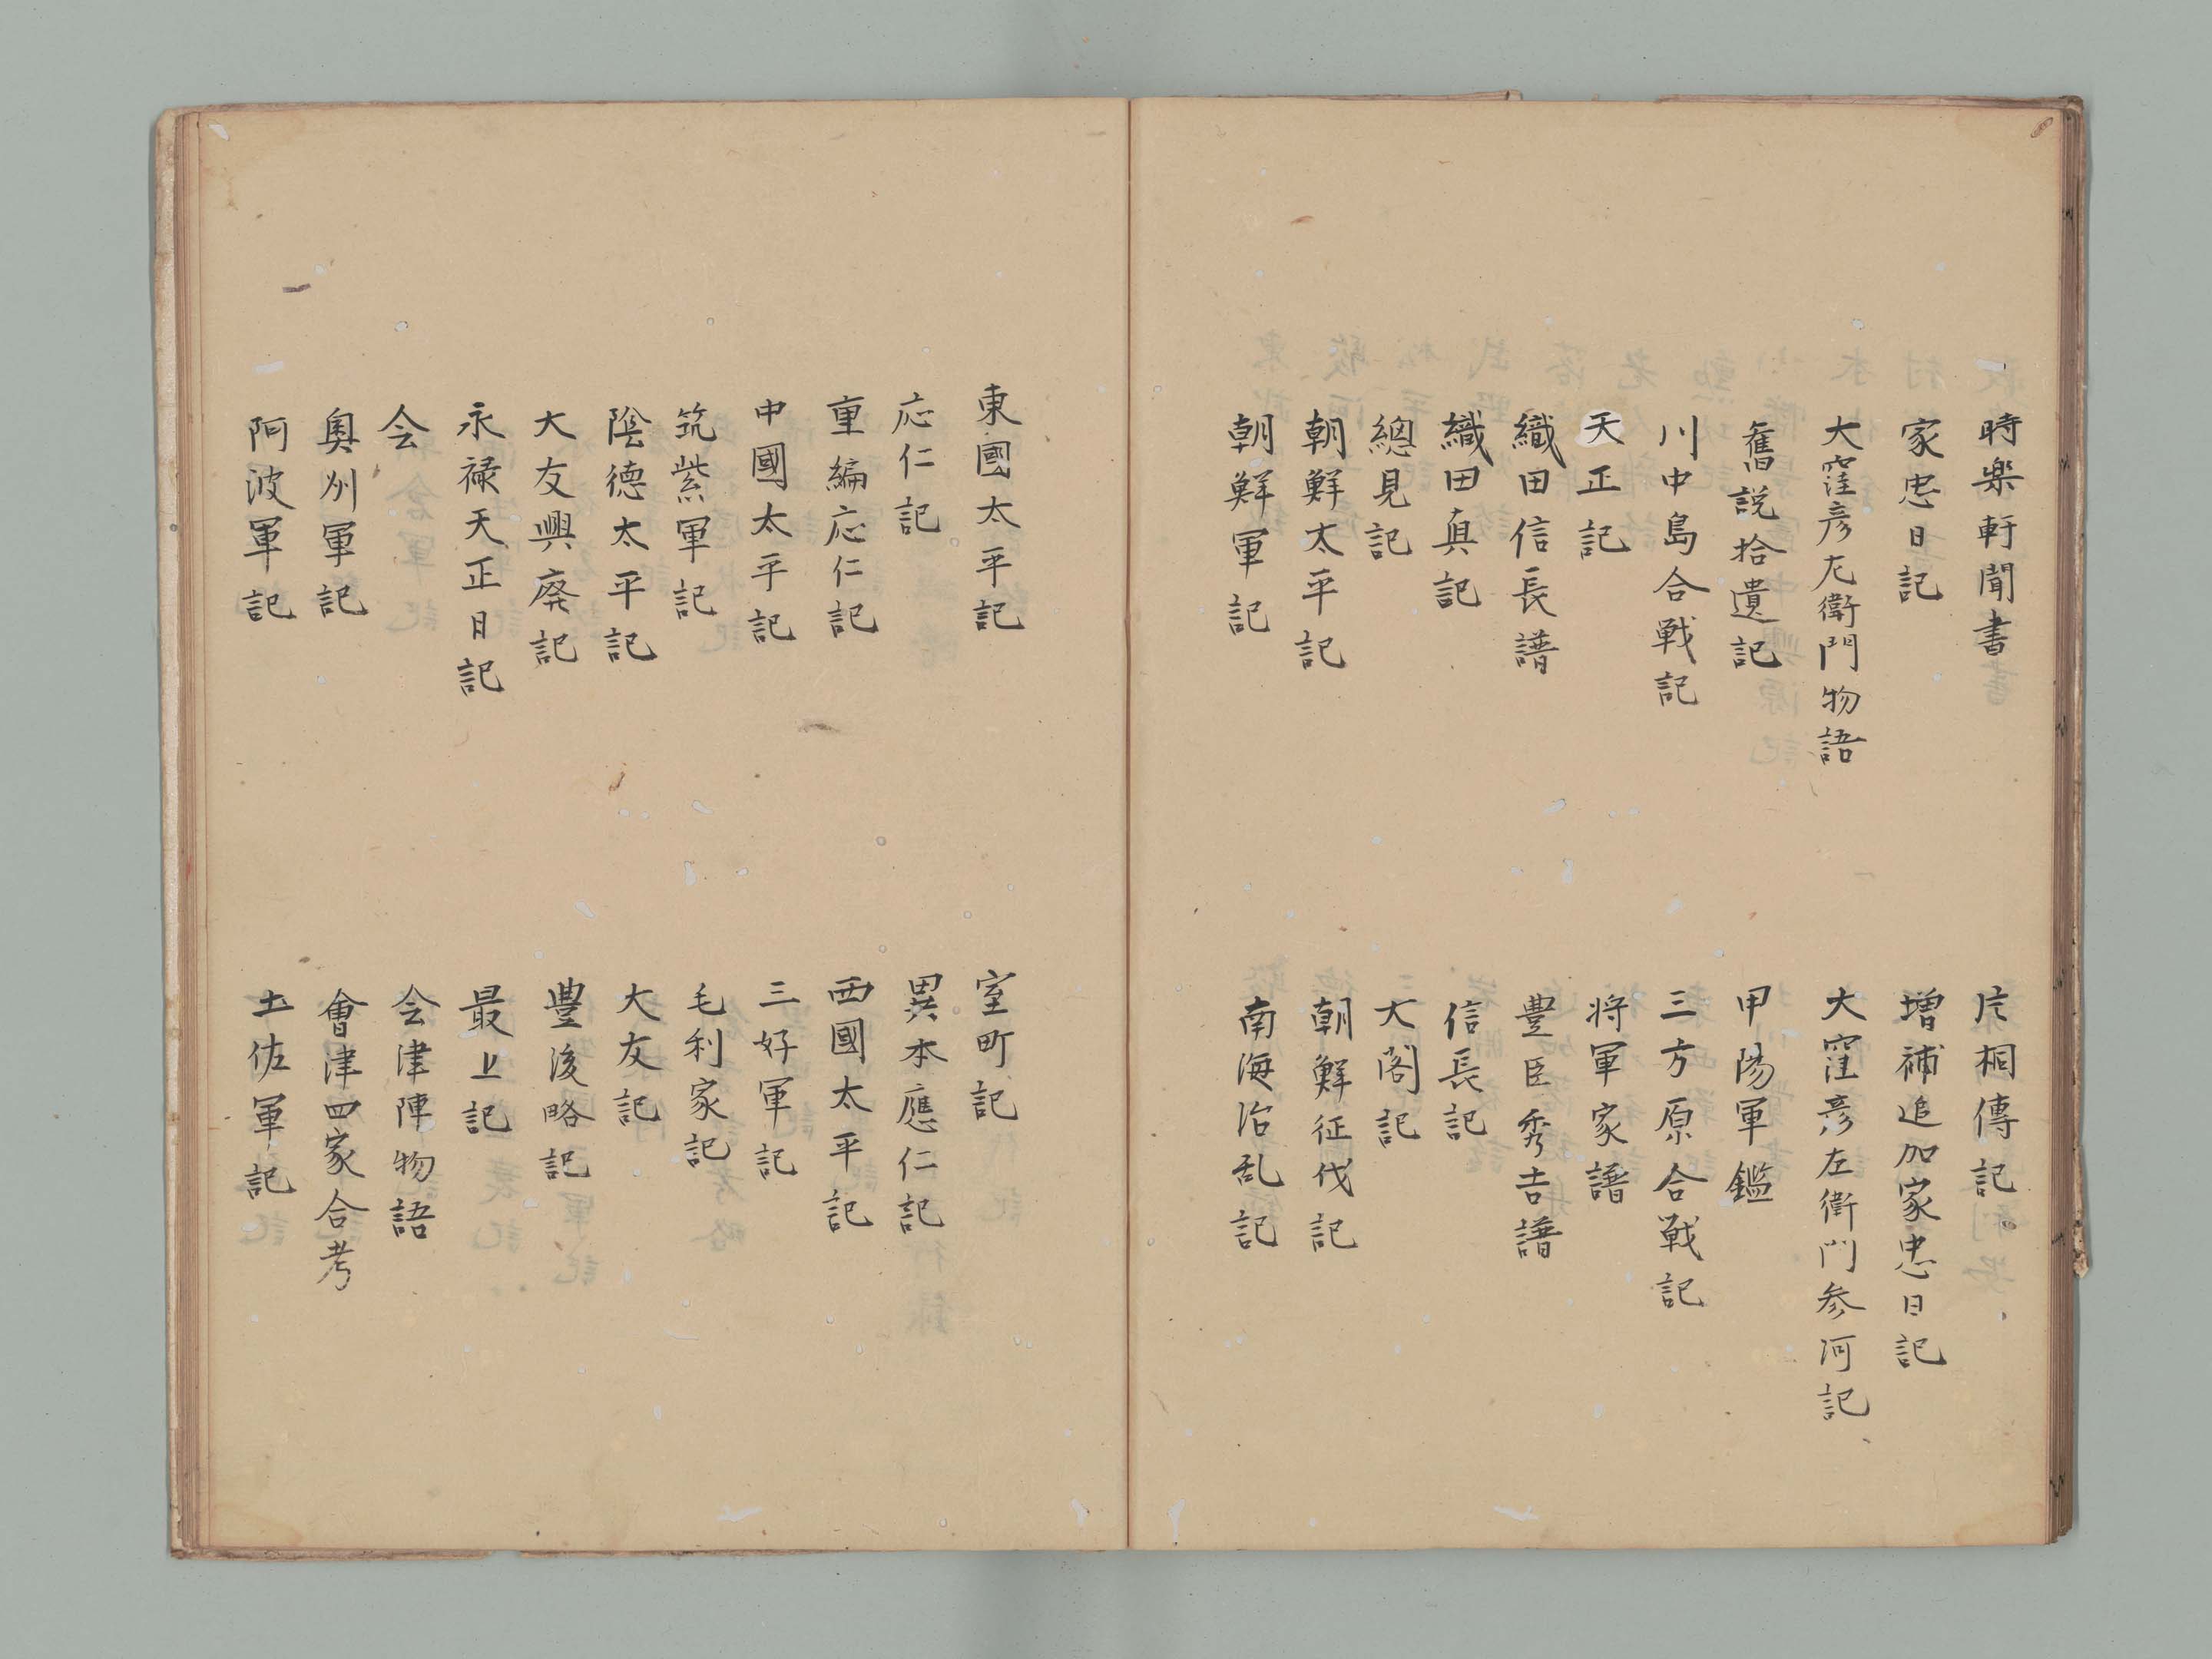 時楽軒聞書
片桐傳記
家忠日記
増補追加家忠日記
大窪彦左衛門物語
大窪彦左衛門参河記
舊説拾遺記
甲陽軍鑑
川中島合戦記
三方原合戦記
天正記
将軍家譜
織田信長譜
豊臣秀吉譜
織田真記
信長記
總見記
大閤記
朝鮮太平記
朝鮮征伐記
朝鮮軍記
南海治乱記
東國太平記
室町記
応仁記
異本應仁記
重編応仁記
西國太平記
中國太平記
三好軍記
筑紫軍記
毛利家記
陰德太平記
大友記
大友興廃記
豊後略記
永禄天正日記
最上記
会
会津陣物語
奥州軍記
會津四家合考
阿波軍記
土佐軍記